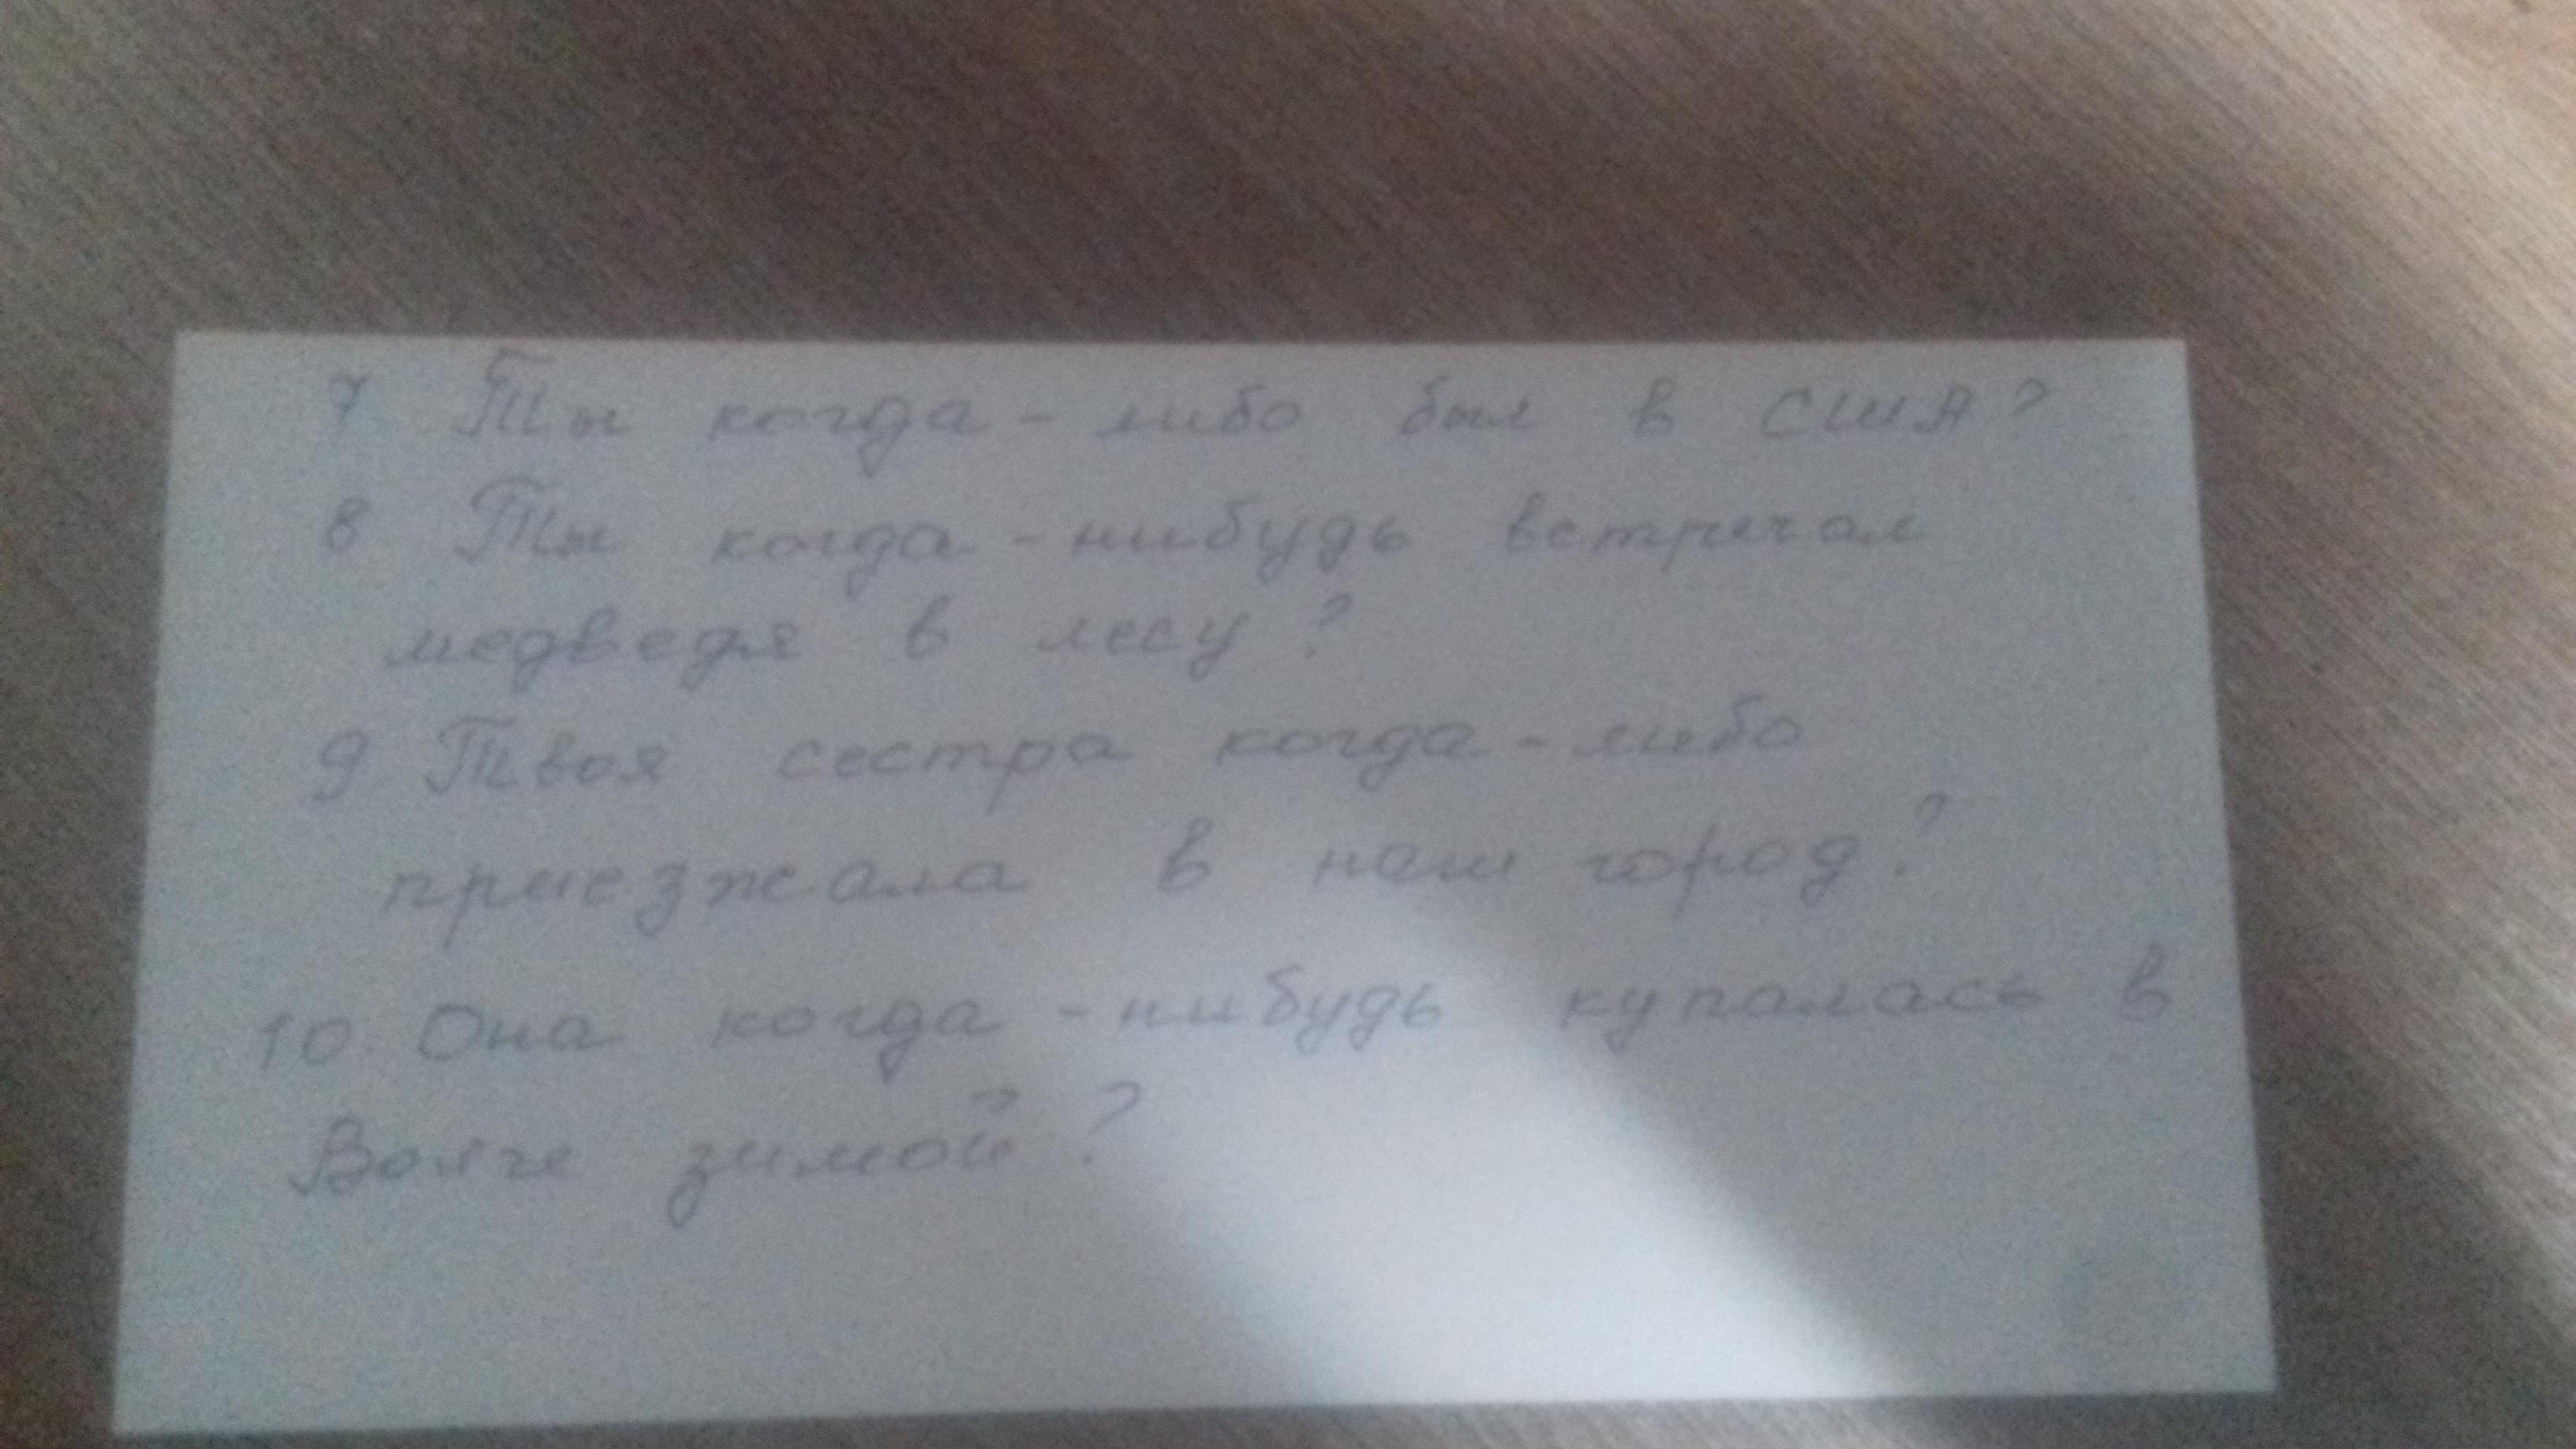 7 Ты когда-либо был в США?
8 Ты когда-нибудь встречал
медведя в лесу?
9. Твоя сестра когда-либо
приезжала в наш город?
10. Она когда-нибудь купалась в
Волге зимой?